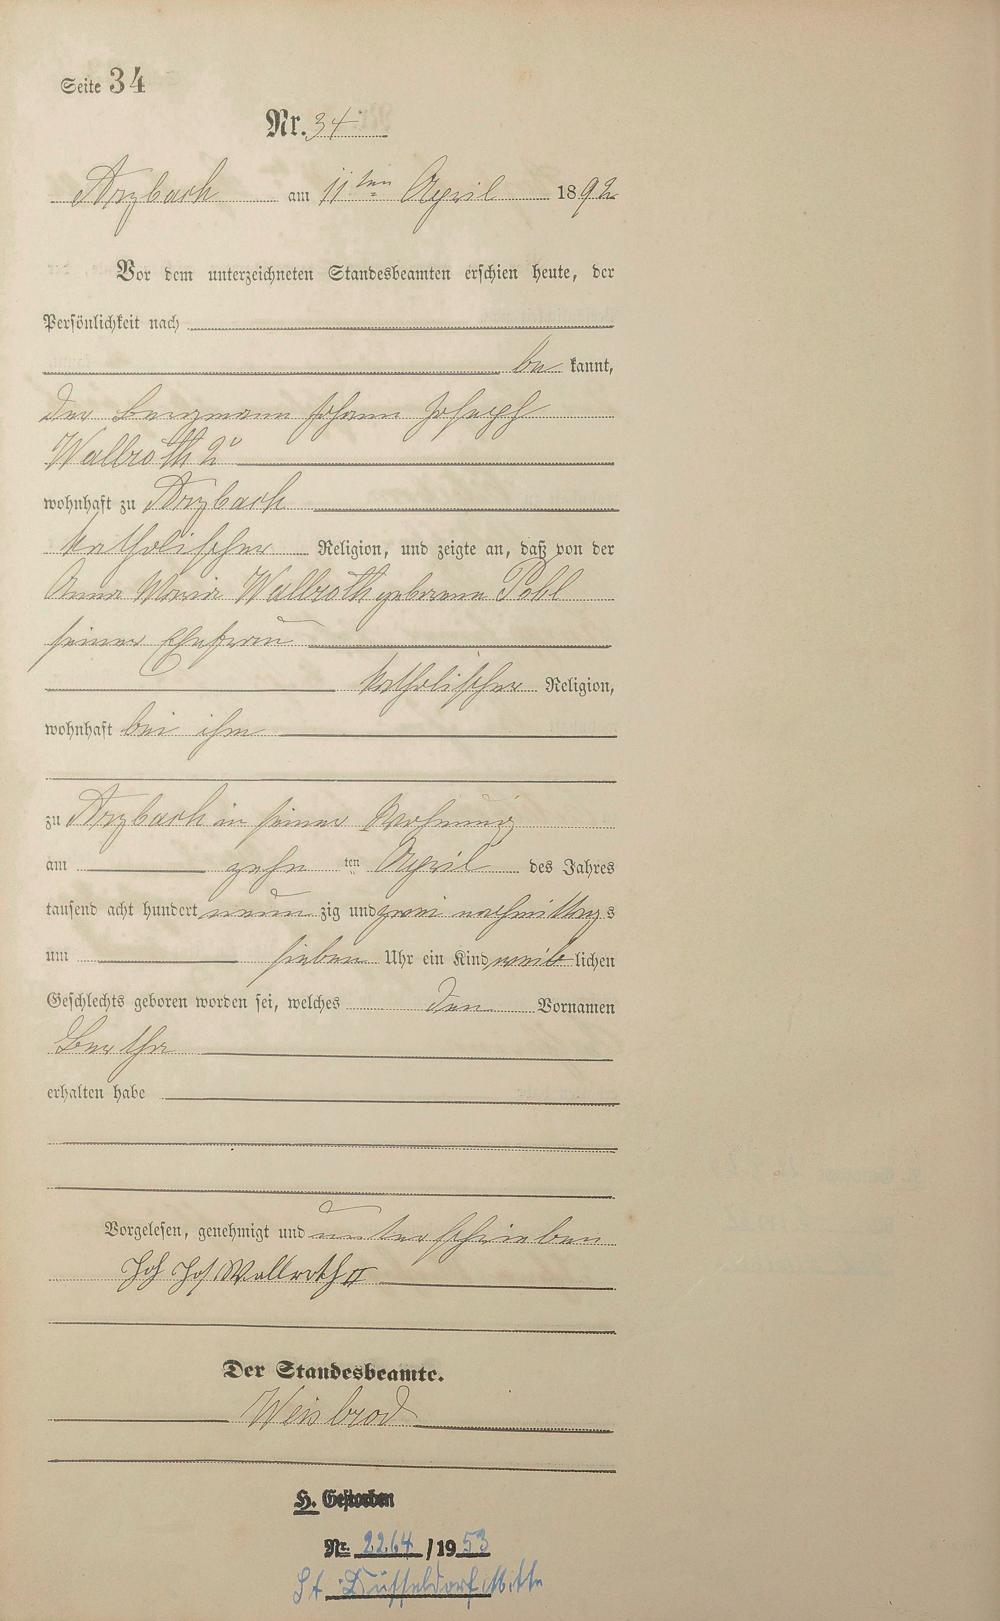 Seite 34
Nr. 34
Arzbach am 11ten April 1892
Vor dem unterzeichneten Standesbeamten erschien heute, der
Persönlichkeit nach
be kannt,
der Bergmann Johann Joseph
Wallroth 2r
wohnhaft zu Arzbach
katholischer Religion, und zeigte an, daß von der
Anna Maria Wallroth geborene Pohl
seiner Ehefrau
katholischer Religion,
wohnhaft bei ihm
zu Arzbach in seiner Wohnung
am zehn ten April des Jahres
tausend acht hundert neun zig und zwei nachmittags
um sieben Uhr ein Kind weib lichen
Geschlechts geboren worden sei, welches den Vornamen
Bertha
erhalten habe
Vorgelesen, genehmigt und unterschrieben
Joh Jos Wallroth II
Der Standesbeamte.
Weisbrod
H. Gestorben
Nr. 2264/1953
St. Düsseldorf Mitte